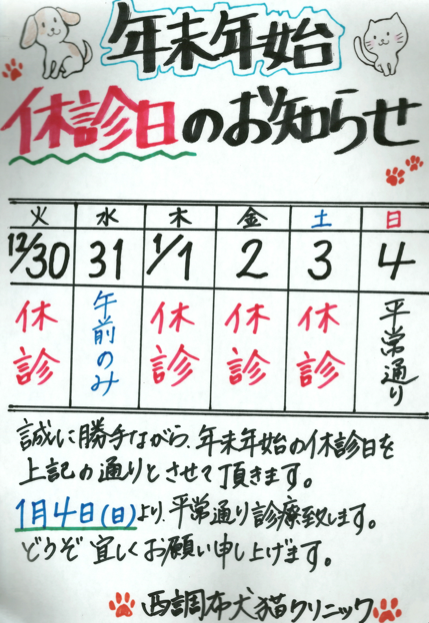 年末年始
休診日のお知らせ
火 水 木 金 土 日
12/30 31 1/1 2 3 4
休診 午前のみ 休診 休診 休診 平常通り
誠に勝手ながら、年末年始の休診日を
上記の通りとさせて頂きます。
1月4日(日)より、平常通り診療致します。
どうぞ宜しくお願い申し上げます。
西調布犬猫クリニック